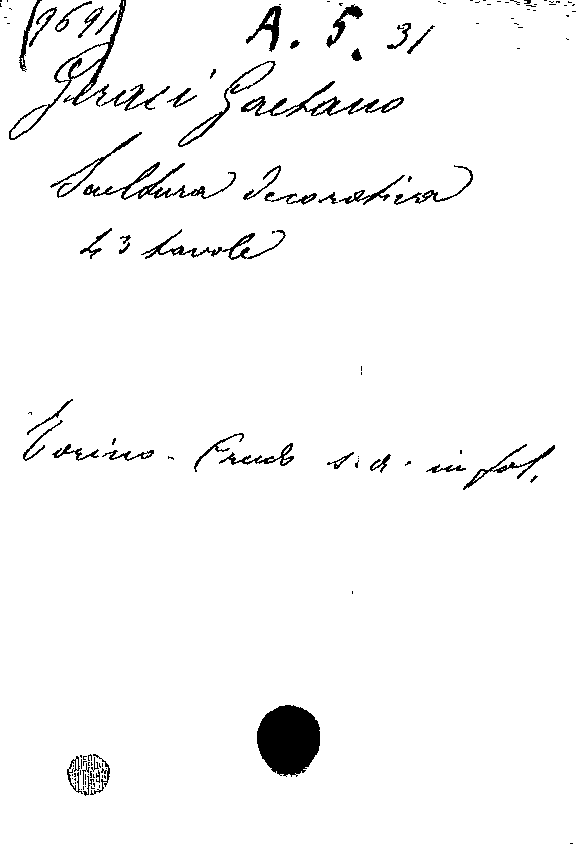 (9691) A. 5. 31
Geraci Gaetano
Scultura decorativa
43 tavole
Torino - Crudo s. a. in fol.